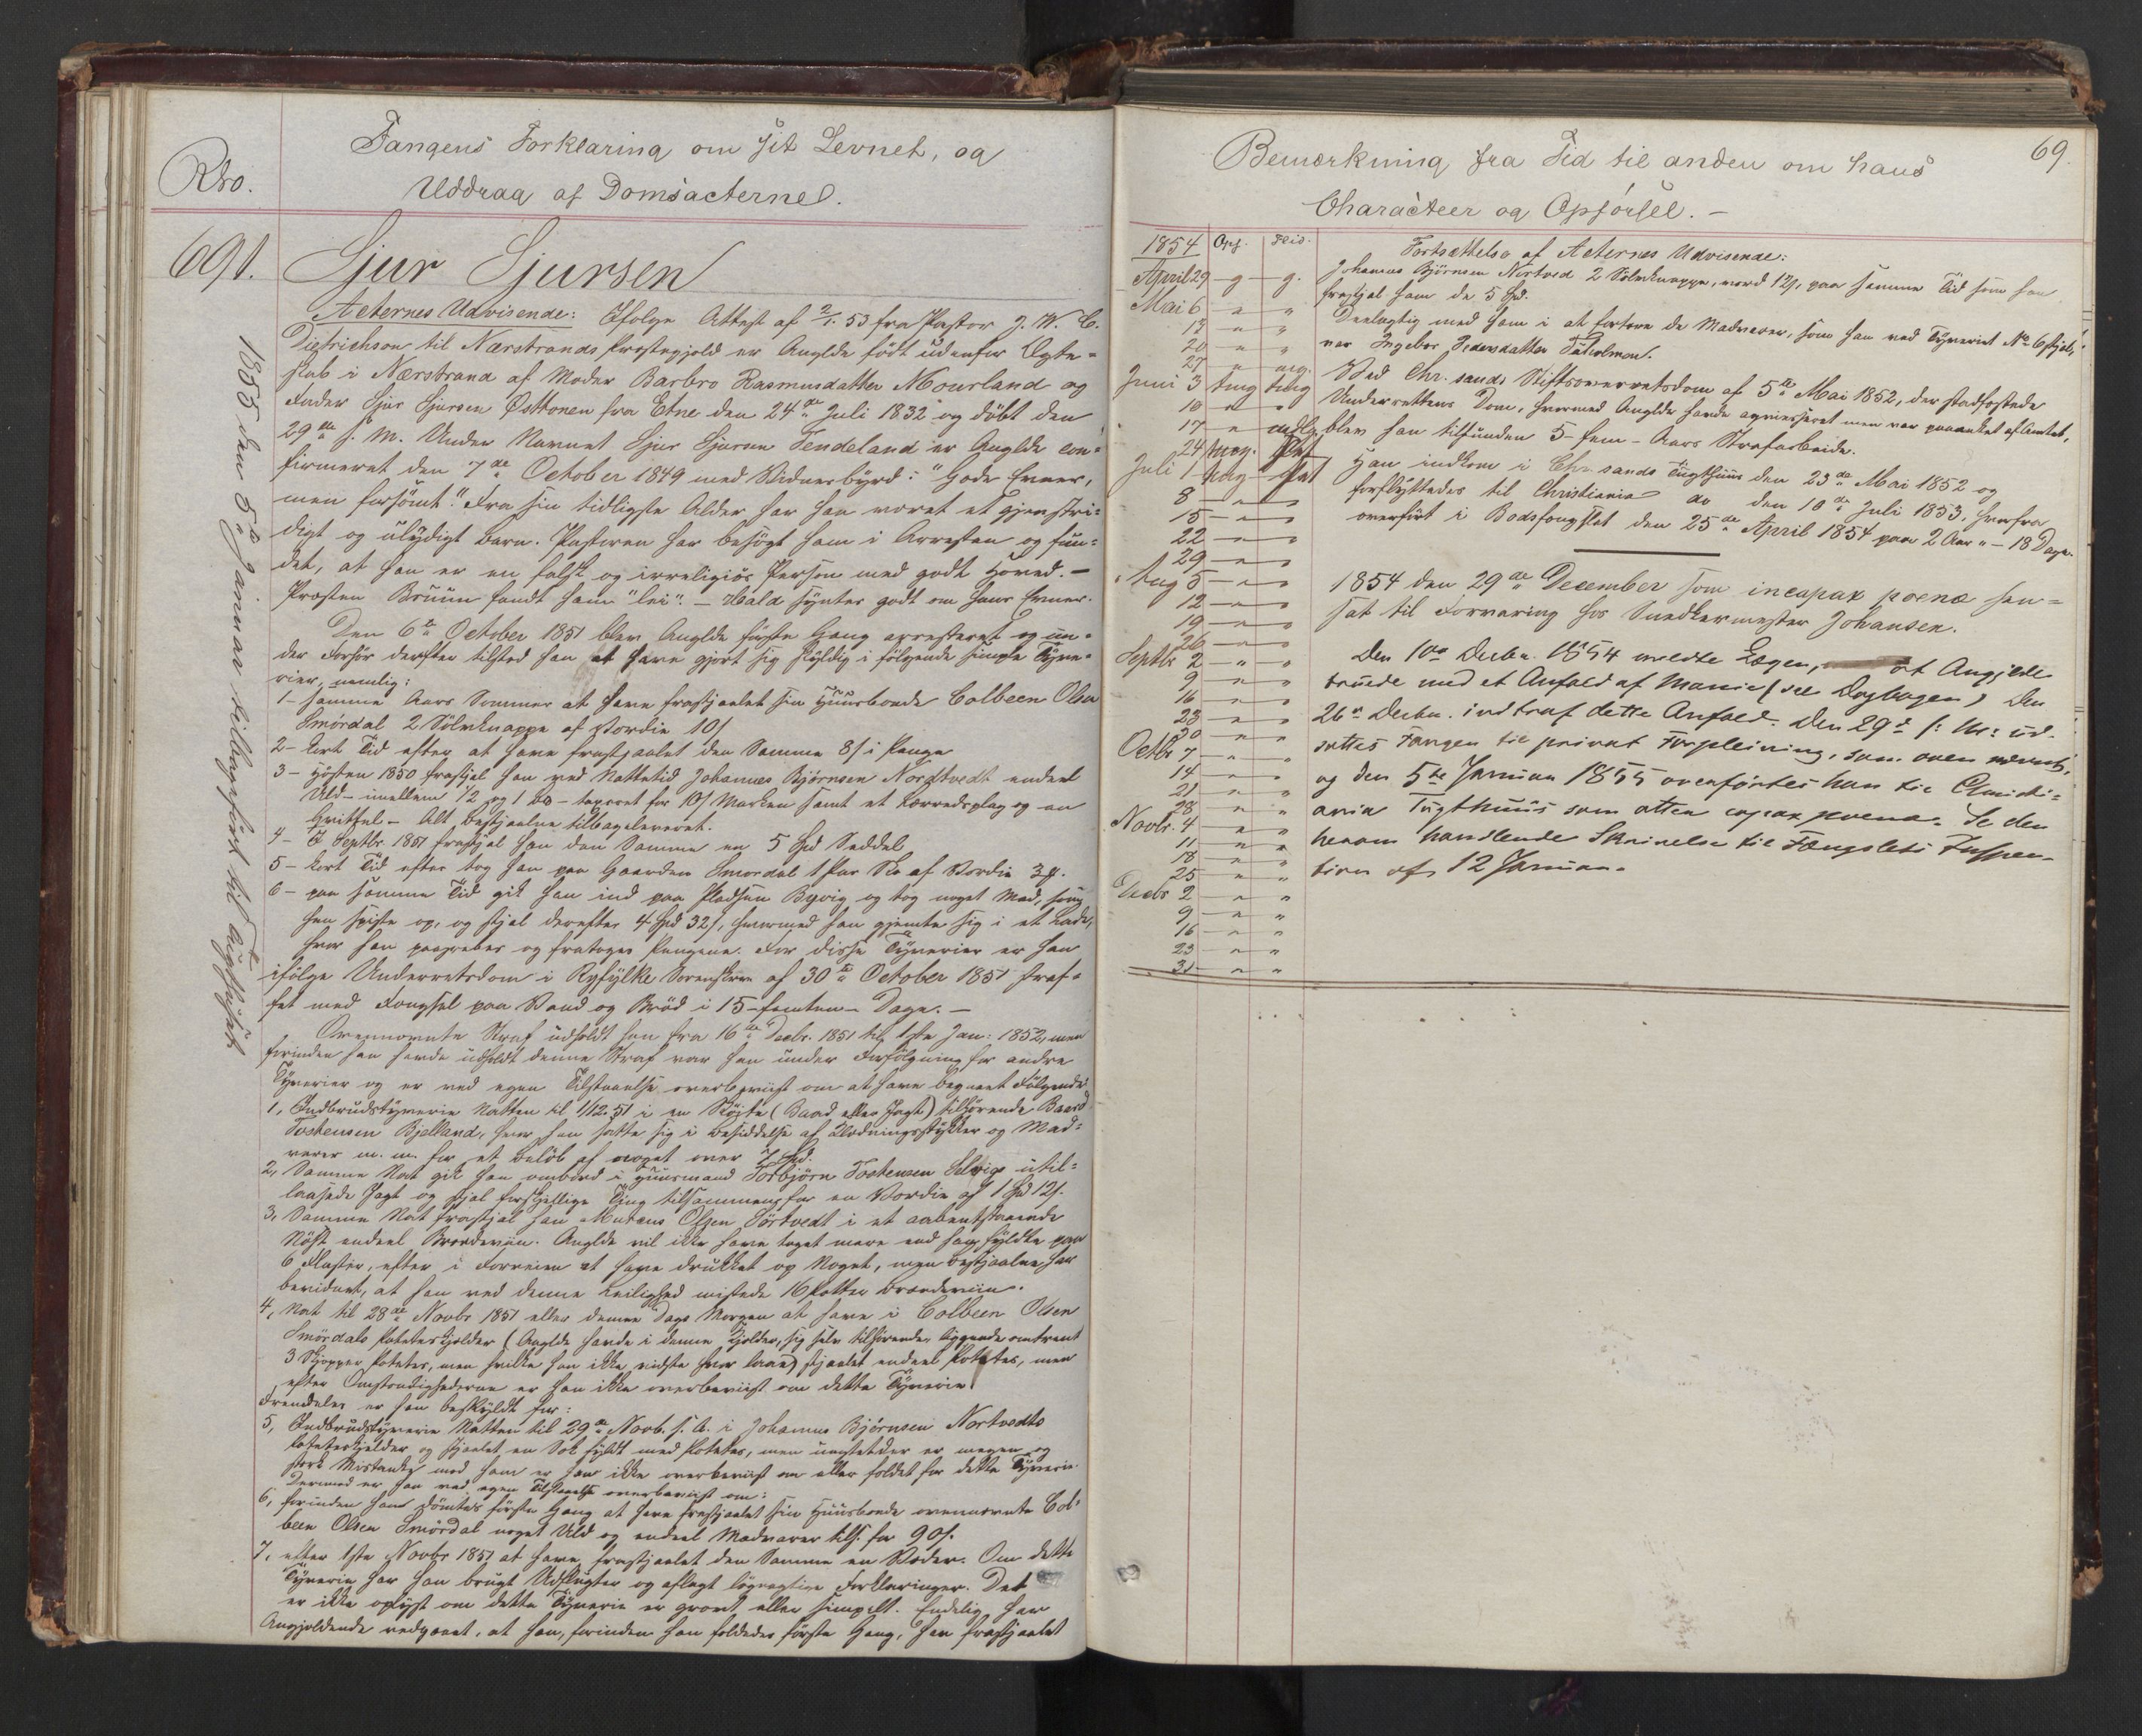 Fangens Forklaring om sit Levnet, og
Uddrag af Domsacterne.
Rho.
691.
Sjur Sjursen
Acternes Udvisende: Ifølge Attest af 2/1. 53 fra Pastor J. W. C.
Dietrichson til Nærstrands Præstegjeld er Anglde født udenfor Ægte-
skab i Nærstrand af Moder Barbro Rasmusdatter Mourland og
Fader Sjur Sjursen Østtonen fra Etne den 24de Juli 1832 og døbt den
29de s. M. Under Navnet Sjur Sjursen Tendeland er Anglde con-
firmeret den 7de October 1849 med Vidnesbyrd: "Gode Evner,
men forsømt". Fra sin tidligste Alder har han været et gjenstri-
digt og ulydigt Barn. Pastoren har besøgt ham i Arresten og fun-
det, at han er en falsk og irreligiøs Person med godt Hoved. -
Præsten Bruun fandt ham "lei". - Hald synter godt om hans Evner.
Den 6te October 1851 blev Anglde første Gang arresteret og un-
der Forhør derefter tilstod han at have gjort sig skyldig i følgende simple Tyve-
rier, nemlig:
1 - samme Aars Sommer at have frastjaalet sin Huusbonde Colbeen Olsen
Smørdal 2 Sølvknappe af Værdie 10 s
2 - kort Tid efter at have frastjaalet den Samme 8 s i Penge
3 - Høsten 1850 frastjal han ved Nattetid Johannes Bjørnsen Nordtvedt endeel
Uld - imellem 1/2 og 1 - taxeret for 10 s Marken samt et Lærredsplag og en
- Alt Bestjaalne tilbageleveret.
4 - I Septbr 1851 frastjal han den Samme en 5 Spd Seddel
5 - kort Tid efter tog han paa Gaarden Smørdal 1 Par Sko af Værdie 3
6 - paa samme Tid gik han ind paa Pladsen og tog noget Mad, som
han spiste op, og stjal derefter 4 Spd 32 s, hvormed han gjemte sig i et Lade,
hvor han paagrebes og fratoges Pengene. For disse Tyverier er han
ifølge Underretsdom i Ryfylke Sorenskrive af 30te October 1851 straf-
fet med Fængsel paa Vand og Brød i 15 - femten - Dage. -
Ovennævnte Straf udholdt han fra 16de Decbr. 1851 til 1ste Jan: 1852, men
forinden han havde udholdt denne Straf var han under Forfølgning for andre
Tyverier og er ved egen Tilstaaelse overbeviist om at have begaaet Følgende
1, Indbrudstyverie Natten til 1/12.51 i en Skøjte (Baad eller Jagt) tilhørende Baard
Tostensen Bjelland, hvor han satte sig i Besiddelse af Klædningsstykker og Mad-
varer m. m. for et Beløb af noget over 7 Spd.
2, Samme Nat gik han ombord i Huusmand Torbjørn Tostensen Selvigs util-
laasede Jagt og stjal forskjellige Ting tilsammen for en Værdie af 1 Spd 12 s.
3, Samme Nat frastjal han Olsen Sørtvedt i et aabentstaaende
Nøst endeel Brændeviin. Anglde vil ikke have taget mere end han fyldte paa
6 Flasker, efter i Forveien at have drukket op Noget, men Bestjaalne har
bevidnet, at han ved denne Leilighed mistede 16 Potter Brændeviin.
4, Nat til 28de Novbr 1851 eller denne Dags Morgen at have i Colbeen Olsen
Smørdals Poteteskjelder (Anglde havde i denne Kjelder, sig selv tilhørende, liggende omtrent
3 Skjepper Poteter, men hvilke han ikke vidste hvor laae) stjaalet endeel Poteter, men
efter Omstændighederne er han ikke overbeviist om dette Tyverie.
Fremdeles er han beskyldt for:
5, Indbrudstyverie Natten til 29de Novb. s. A. i Johannes Bjørnsen Nortvedts
Poteteskjelder og stjaalet en Sæk fyldt med Poteter, men uagtet der er megen og
stærk Mistanke mod ham er han ikke overbeviist om eller fældet for dette Tyverie.
Derimod er han ved egen Tilstaaelse overbeviist om:
6, forinden han dømtes første Gang at have frastjaalet sin Huusbonde ovennævnte Col-
been Olsen Smørdal noget Uld og endeel Madvarer tils. for 90 s.
7, efter 1ste Novbr 1851 at have frastjaalet den Samme en Om dette
Tyverie har han brugt Udflugter og aflagt løgnagtige Forklaringer. Det
er ikke oplyst om dette Tyverie er grovt eller simpelt. Endelig har
Angjældende vedgaaet, at han, forinden han fældedes første Gang, har frastjaalet
1855 den 5te Januar tilbageført til Tugthuset
69.
Bemærkning fra Tid til anden om hans
Characteer og Opførsel. -
1854 Opf. Flid.
April 29 - g - g.
Mai 6 - " - "
13 - " - "
20 - " - "
27 - " -
Juni 3 tmg tmg
10 - " - "
17 - "
24 meg.
Juli 1
8 - " - "
15 - " - "
22 - " - "
29 - " - "
Aug 5 - " - "
12 - " - "
19 - " - "
26 - " - "
Septbr 2 - " - "
9 - " - "
16 - " - "
23 - " - "
30 - " - "
Octbr 7 - " - "
14 - " - "
21 - " - "
28 - " - "
Novbr. 4 - " - "
11 - " - "
18 - " - "
25 - " - "
Decbr 2 - " - "
9 - " - "
16 - " - "
23 - " - "
31 - " - "
Fortsættelse af Acternes Udvisende:
Johannes Bjørnsen Nortved 2 Sølvknappe, værd 12 s, paa samme Tid som han
frastjal ham de 5 Spd.
Deelagtig med ham i at fortære de Madvarer, som han ved Tyveriet No 6 stjal,
var Ingebor Pedersdatter
Ved Chr.sands Stiftsoverretsdom af 5te Mai 1852, der stadfæstede
Underrettens Dom, hvormed Anglde havde acquiesceret men var paaanket af Amtet,
blev han tilfunden 5 - fem - Aars Strafarbeide.
Han indkom i Chr.sands Tugthuus den 23de Mai 1852 og
forflyttedes til Christiania do den 10de Juli 1853, hvorfra
overført i Bodsfængslet den 25de April 1854 paa 2 Aar " - 18 Dage.
1854 den 29de December som incapax poenæ hen-
sat til Forvaring hos Snedkermester Johansen.
Den 10de Decbr. 1854 meldte Lægen, at Angjeldende
truede med et Anfald af Manie (see Dagbogen) Den
26de Decbr. indtraf dette Anfald. Den 29de s: M: ud-
sattes Fangen til privat Forpleining, som oven nævnt,
og den 5te Januar 1855 overførtes han til Christi-
ania Tugthuus som atter capax poenæ. Se den
herom handlende Skrivelse til Fængslets Inspec-
tion af 12 Januar.